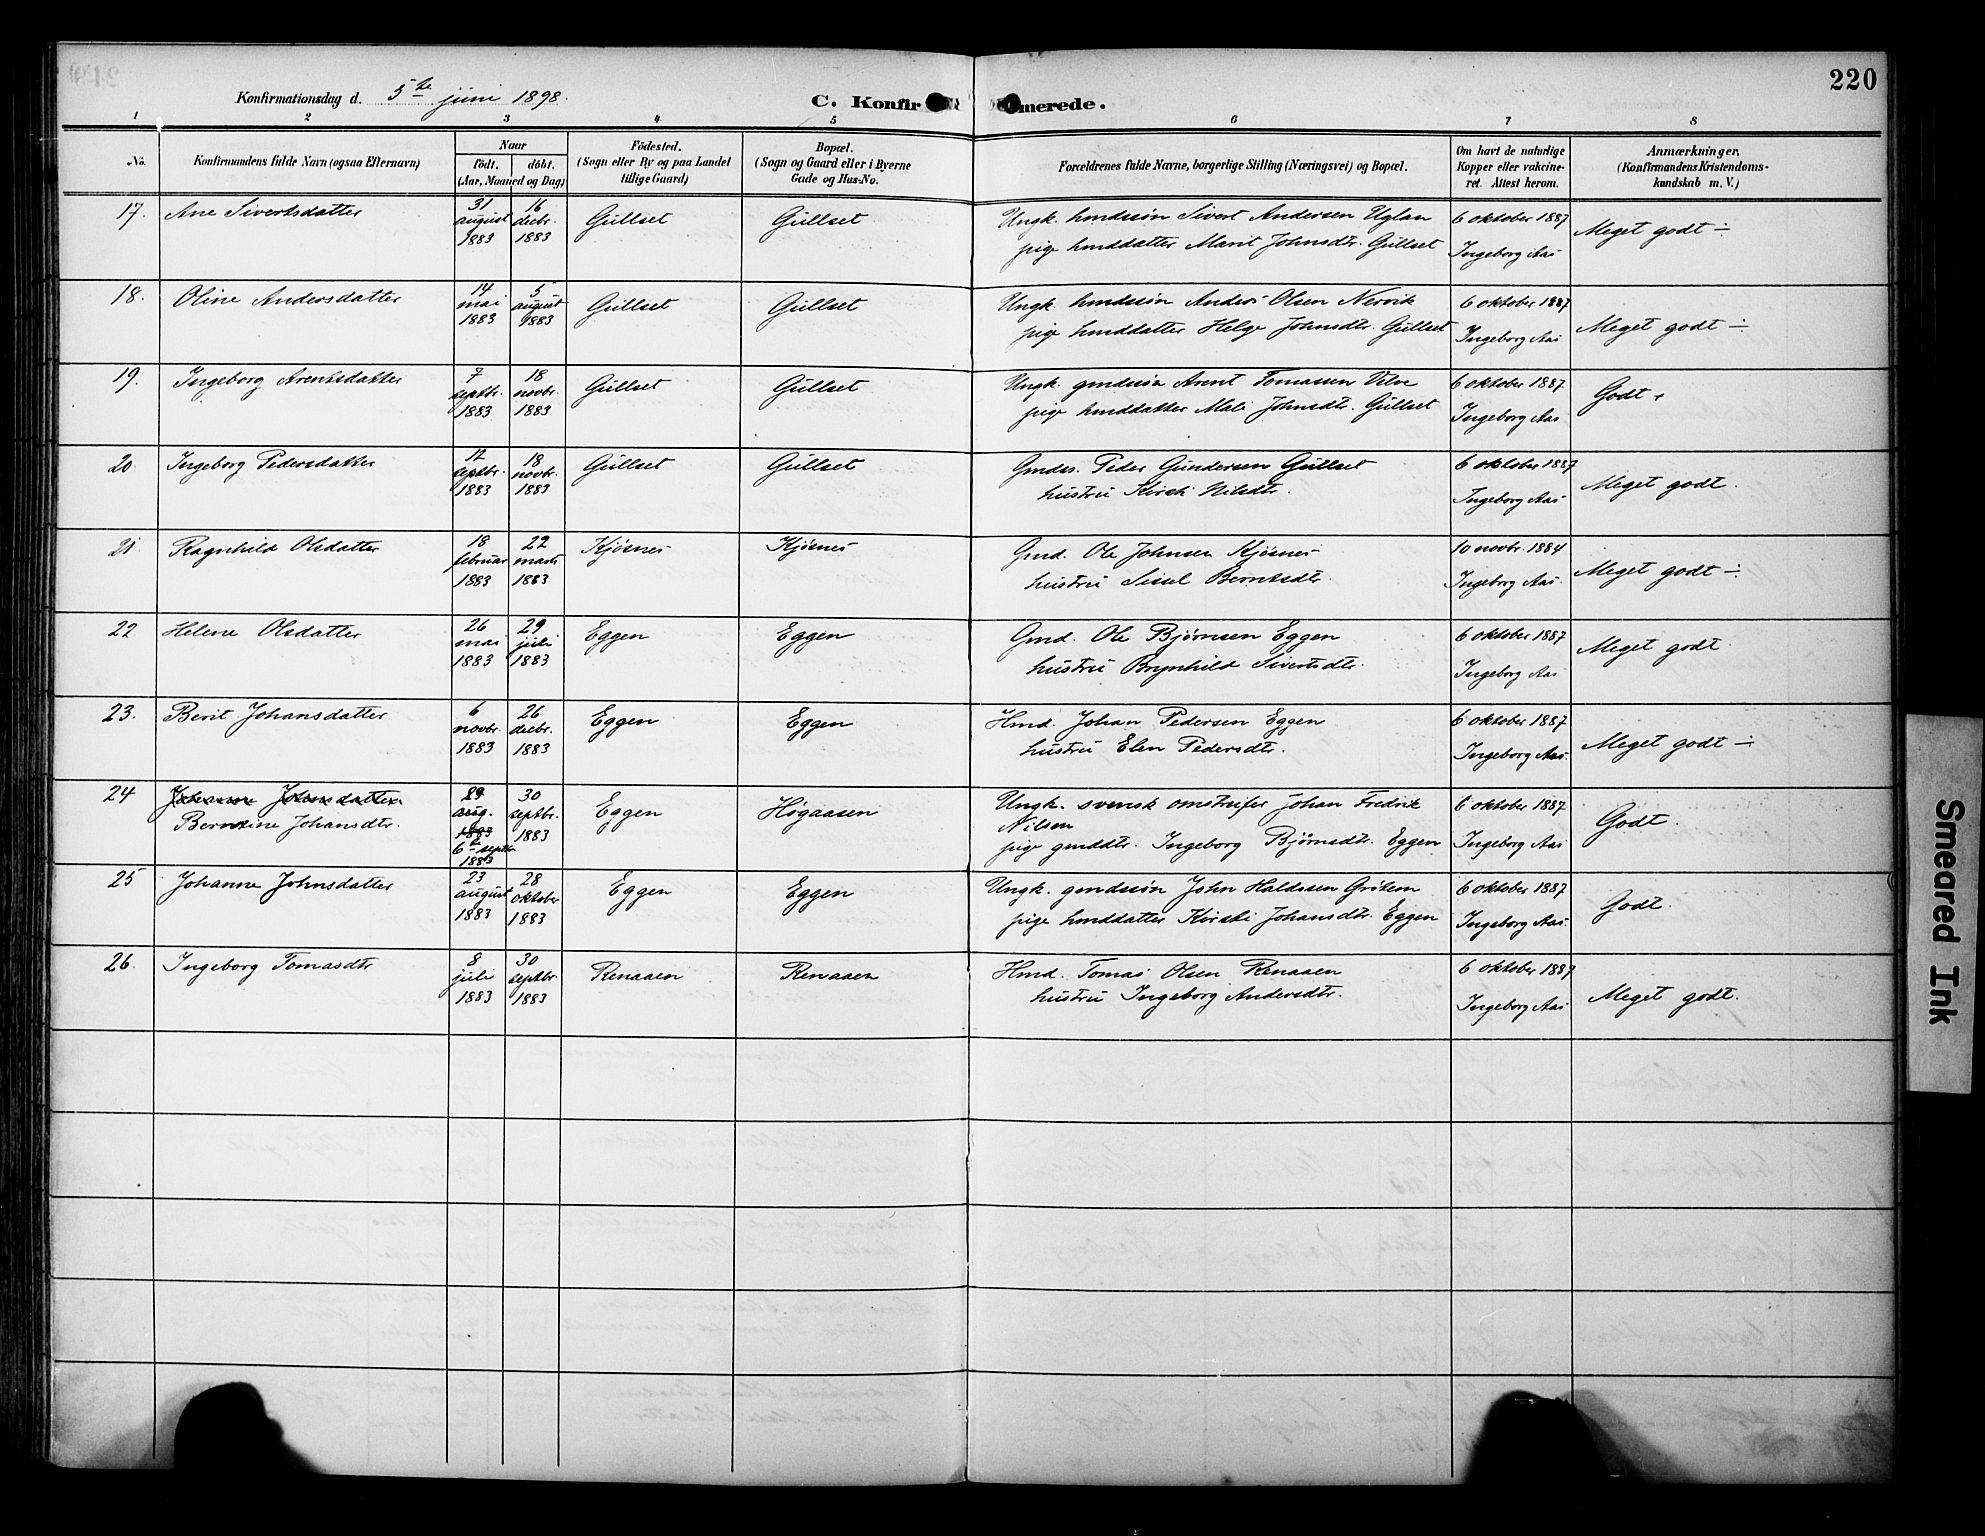 220
Konfirmationsdag d. 5te juni 1898.
C. Konfirmerede.
1 2 3 4 5 6 7 8
No.
Konfirmandens fulde Navn (ogsaa Efternavn)
Naar
födt. döbt.
(Aar, Maaned og Dag)
Födested.
(Sogn eller By og paa Landet
tillige Gaard)
Bopæl.
(Sogn og Gaard eller i Byerne
Gade og Hus-No.
Forældrenes fulde Navne, borgerlige Stilling (Næringsvei) og Bopæl.
Om havt de naturlige
Kopper eller vakcine-
ret. Attest herom.
Anmærkninger.
(Konfirmandens Kristendoms-
kundskab m. V.)
17. Ane Sivertsdatter
31 august 1883
16 decbr. 1883
Gullset
Gullset
Ungk. hmdssøn Sivert Andersen Uglan
pige hmddatter Marit Johnsdtr. Gullset
6 oktober 1887
Ingeborg Aas
Meget godt ÷
18. Oline Andersdatter
14 mai 1883
5 august 1883
Gullset
Gullset
Ungk. hmdssøn Anders Olsen Nervik
pige hmddatter Helge Johnsdtr. Gullset
6 oktober 1887
Ingeborg Aas
Meget godt ÷
19. Ingeborg Arentsdatter
7 septbr. 1883
18 novbr. 1883
Gullset
Gullset
Ungk. gmdssøn Arent Tomassen Velve
pige hmddatter Mali Johnsdtr. Gullset
6 oktober 1887
Ingeborg Aas
Godt
20. Ingeborg Pedersdatter
12 septbr. 1883
18 novbr. 1883
Gullset
Gullset
Gmdss. Peder Gundersen Gullset
hustru Kirsti Nilsdtr.
6 oktober 1887
Ingeborg Aas
Meget godt.
21 Ragnhild Olsdatter
18 februar 1883
22 marts 1883
Kjøsnes
Kjøsnes
Gmd. Ole Johnsen Kjøsnes
hustru Sissel Berntsdtr.
10 novbr. 1884
Ingeborg Aas.
Meget godt ÷
22 Helene Olsdatter
26 mai 1883
29 juli 1883
Eggen
Eggen
Gmd. Ole Bjørnsen Eggen
hustru Brynhild Sivertsdtr.
6 oktober 1887
Ingeborg Aas
Meget godt.
23. Berit Johansdatter
6 novbr. 1883
26 decbr. 1883
Eggen
Eggen
Hmd. Johan Pedersen Eggen
hustru Elen Pedersdtr.
6 oktober 1887
Ingeborg Aas.
Meget godt ÷
24 Johanne Johnsdatter
Berntine Johansdtr.
29 aug. 1883
6te septbr 1883
30 septbr. 1883
Eggen
Høgaasen
Ungk. svensk omstreifer Johan Fredrik
Nilsen
pige gmddtr. Ingeborg Bjørnsdtr. Eggen
6 oktober 1887
Ingeborg Aas
Godt.
25 Johanne Johnsdatter
23 august 1883
28 oktober 1883
Eggen
Eggen
Ungk. gmdssøn John Haldssen Grøtem
pige hmddatter Kirsti Johansdtr. Eggen
6 oktober 1887
Ingeborg Aas.
Godt.
26. Ingeborg Tomasdtr
8 juli 1883
30 septbr 1883
Renaaen
Renaaen
Hmd. Tomas Olsen Renaaen
hustru Ingeborg Andersdtr.
6 oktober 1887
Ingeborg Aas
Meget godt.
Smeared Ink